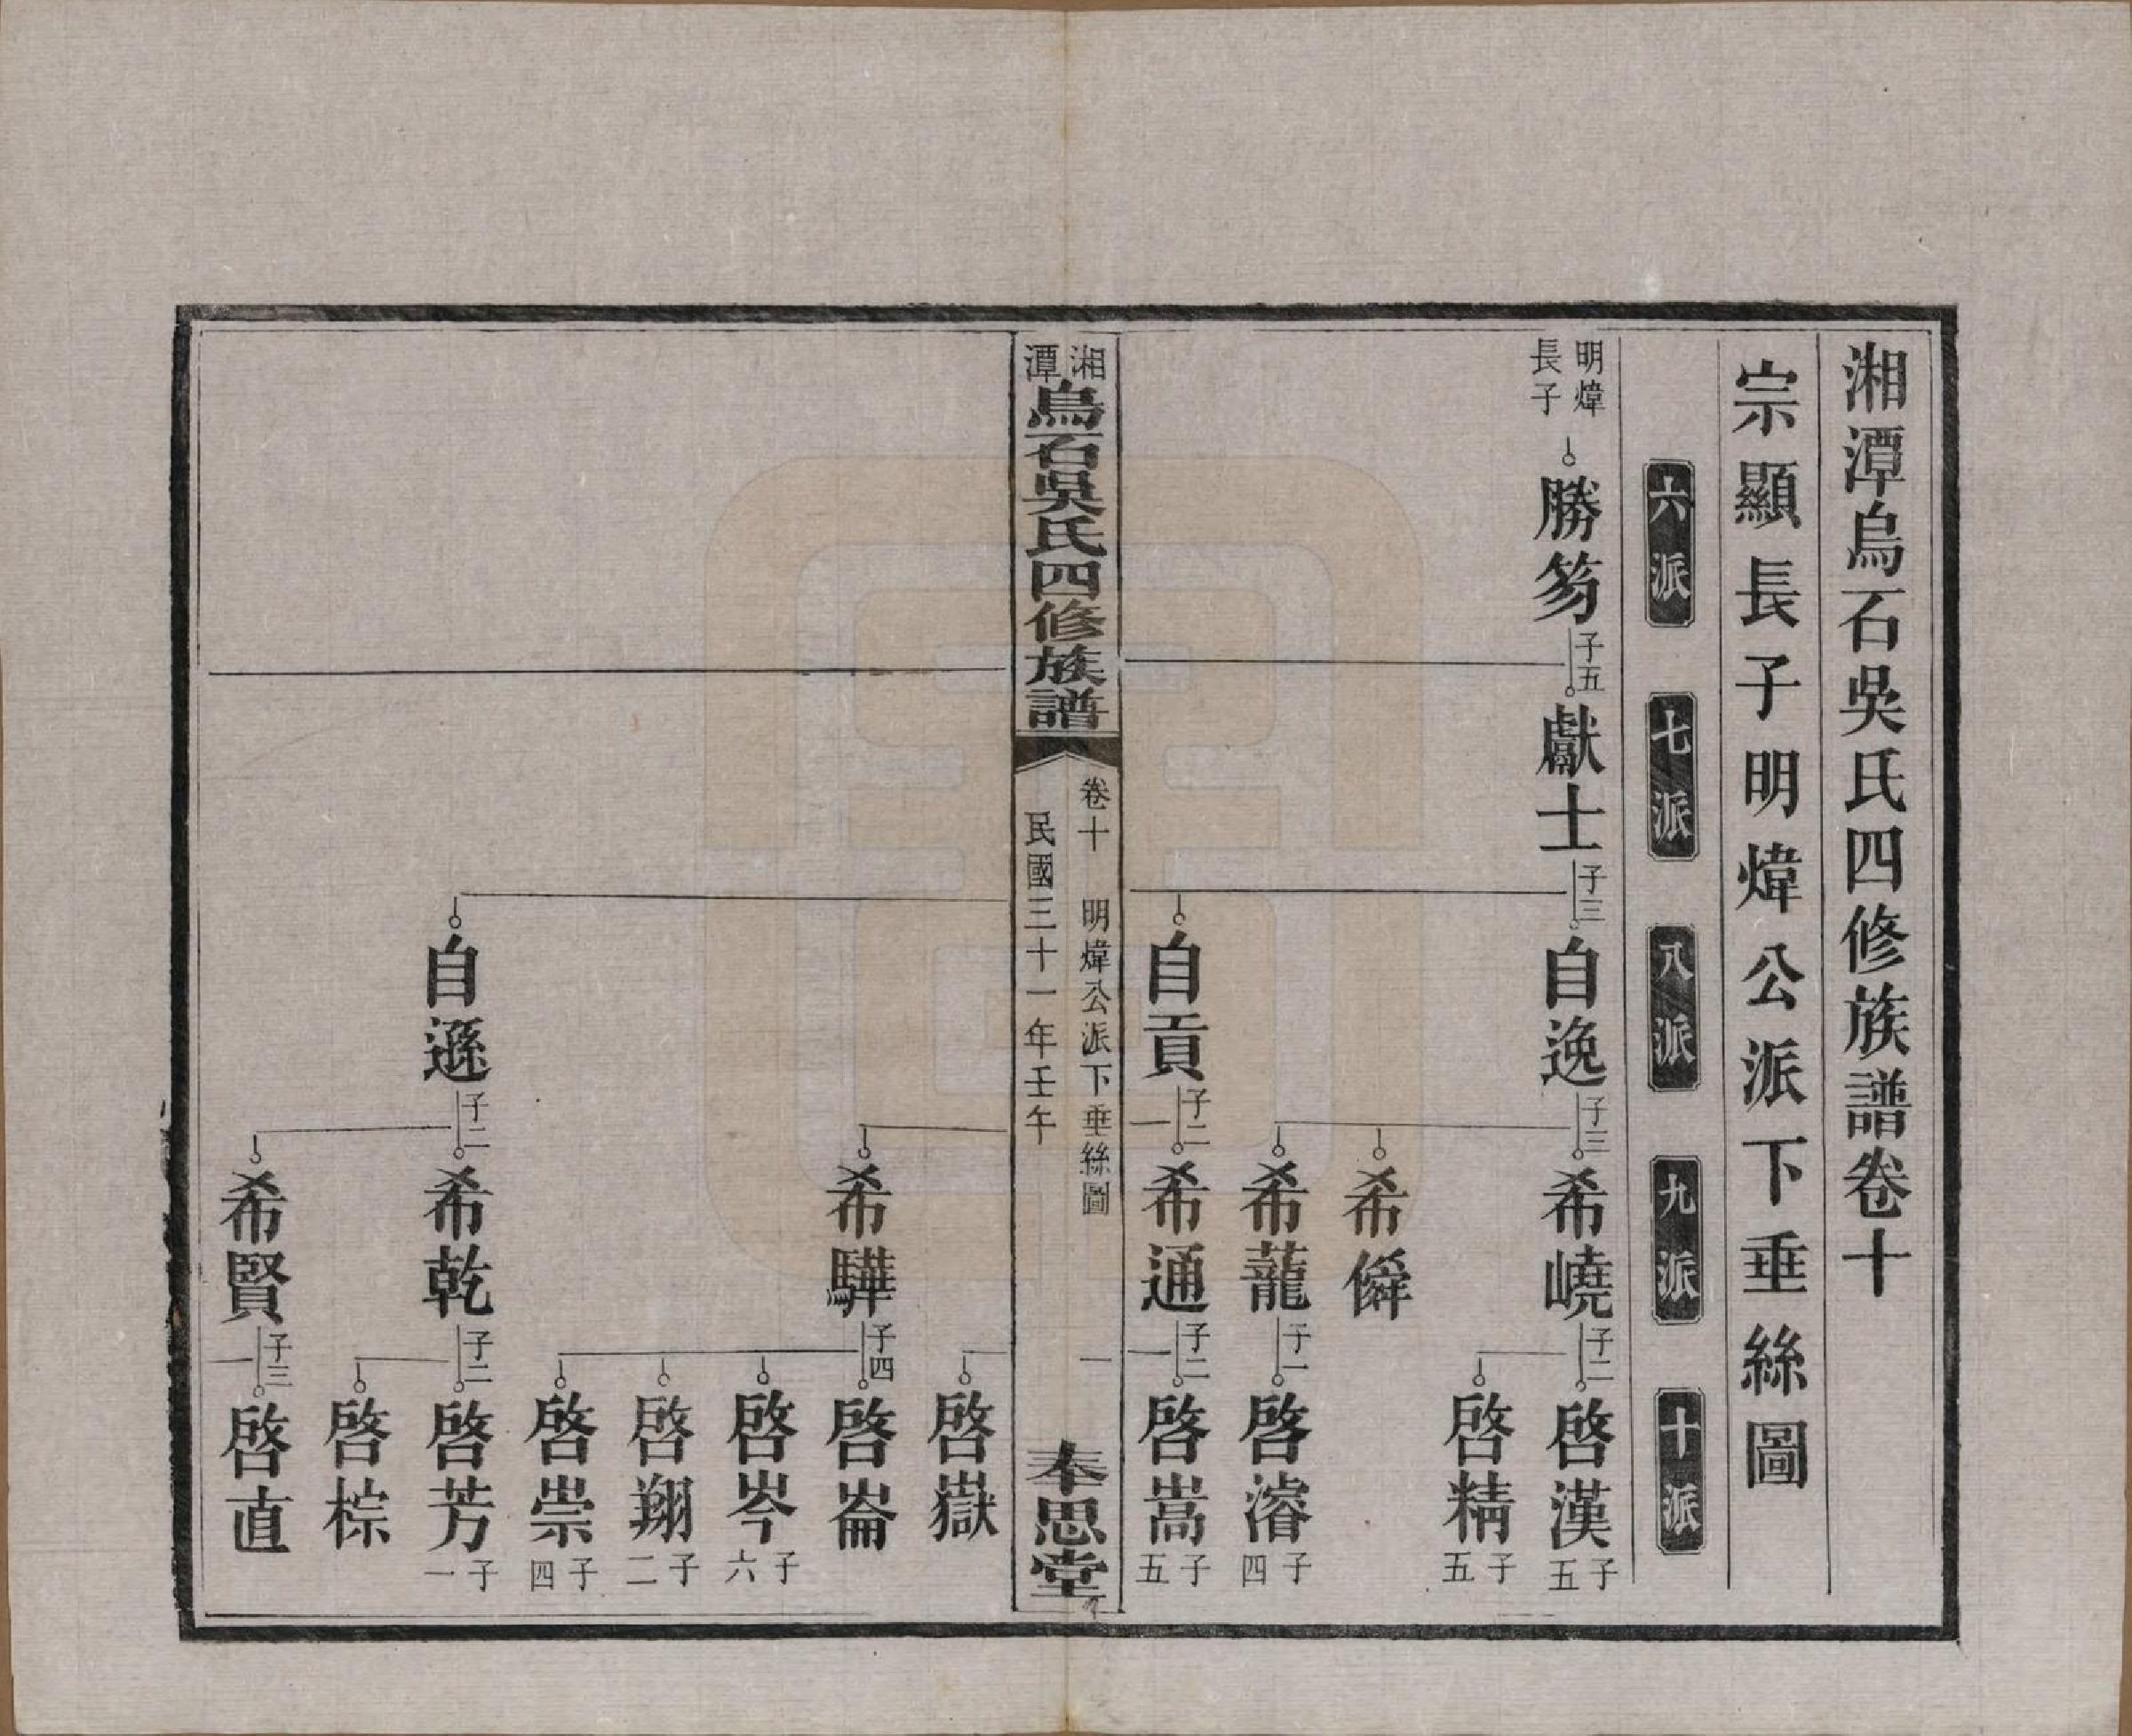 湘潭烏石吳氏四修族譜卷十
宗顯長子明煒公派下垂絲圖
六派
七派
八派
九派
十派
明煒長子
勝芶
子五
獻士
子三
自逸
子三
希嶢
子二
啓漢
子五
啓精
子五
希僢
希蘢
子一
啓濬
子四
自貢
子二
希通
子二
啓嵩
子五
湘潭
烏石吳氏四修族譜
卷十 明煒公派下垂絲圖 一
民國三十一年壬午
奉思堂
啓嶽
希驊
子四
啓崙
啓岑
子六
啓翔
子二
啓崇
子四
自遜
子二
希乾
子二
啓芳
子一
啓棕
希賢
子三
啓直